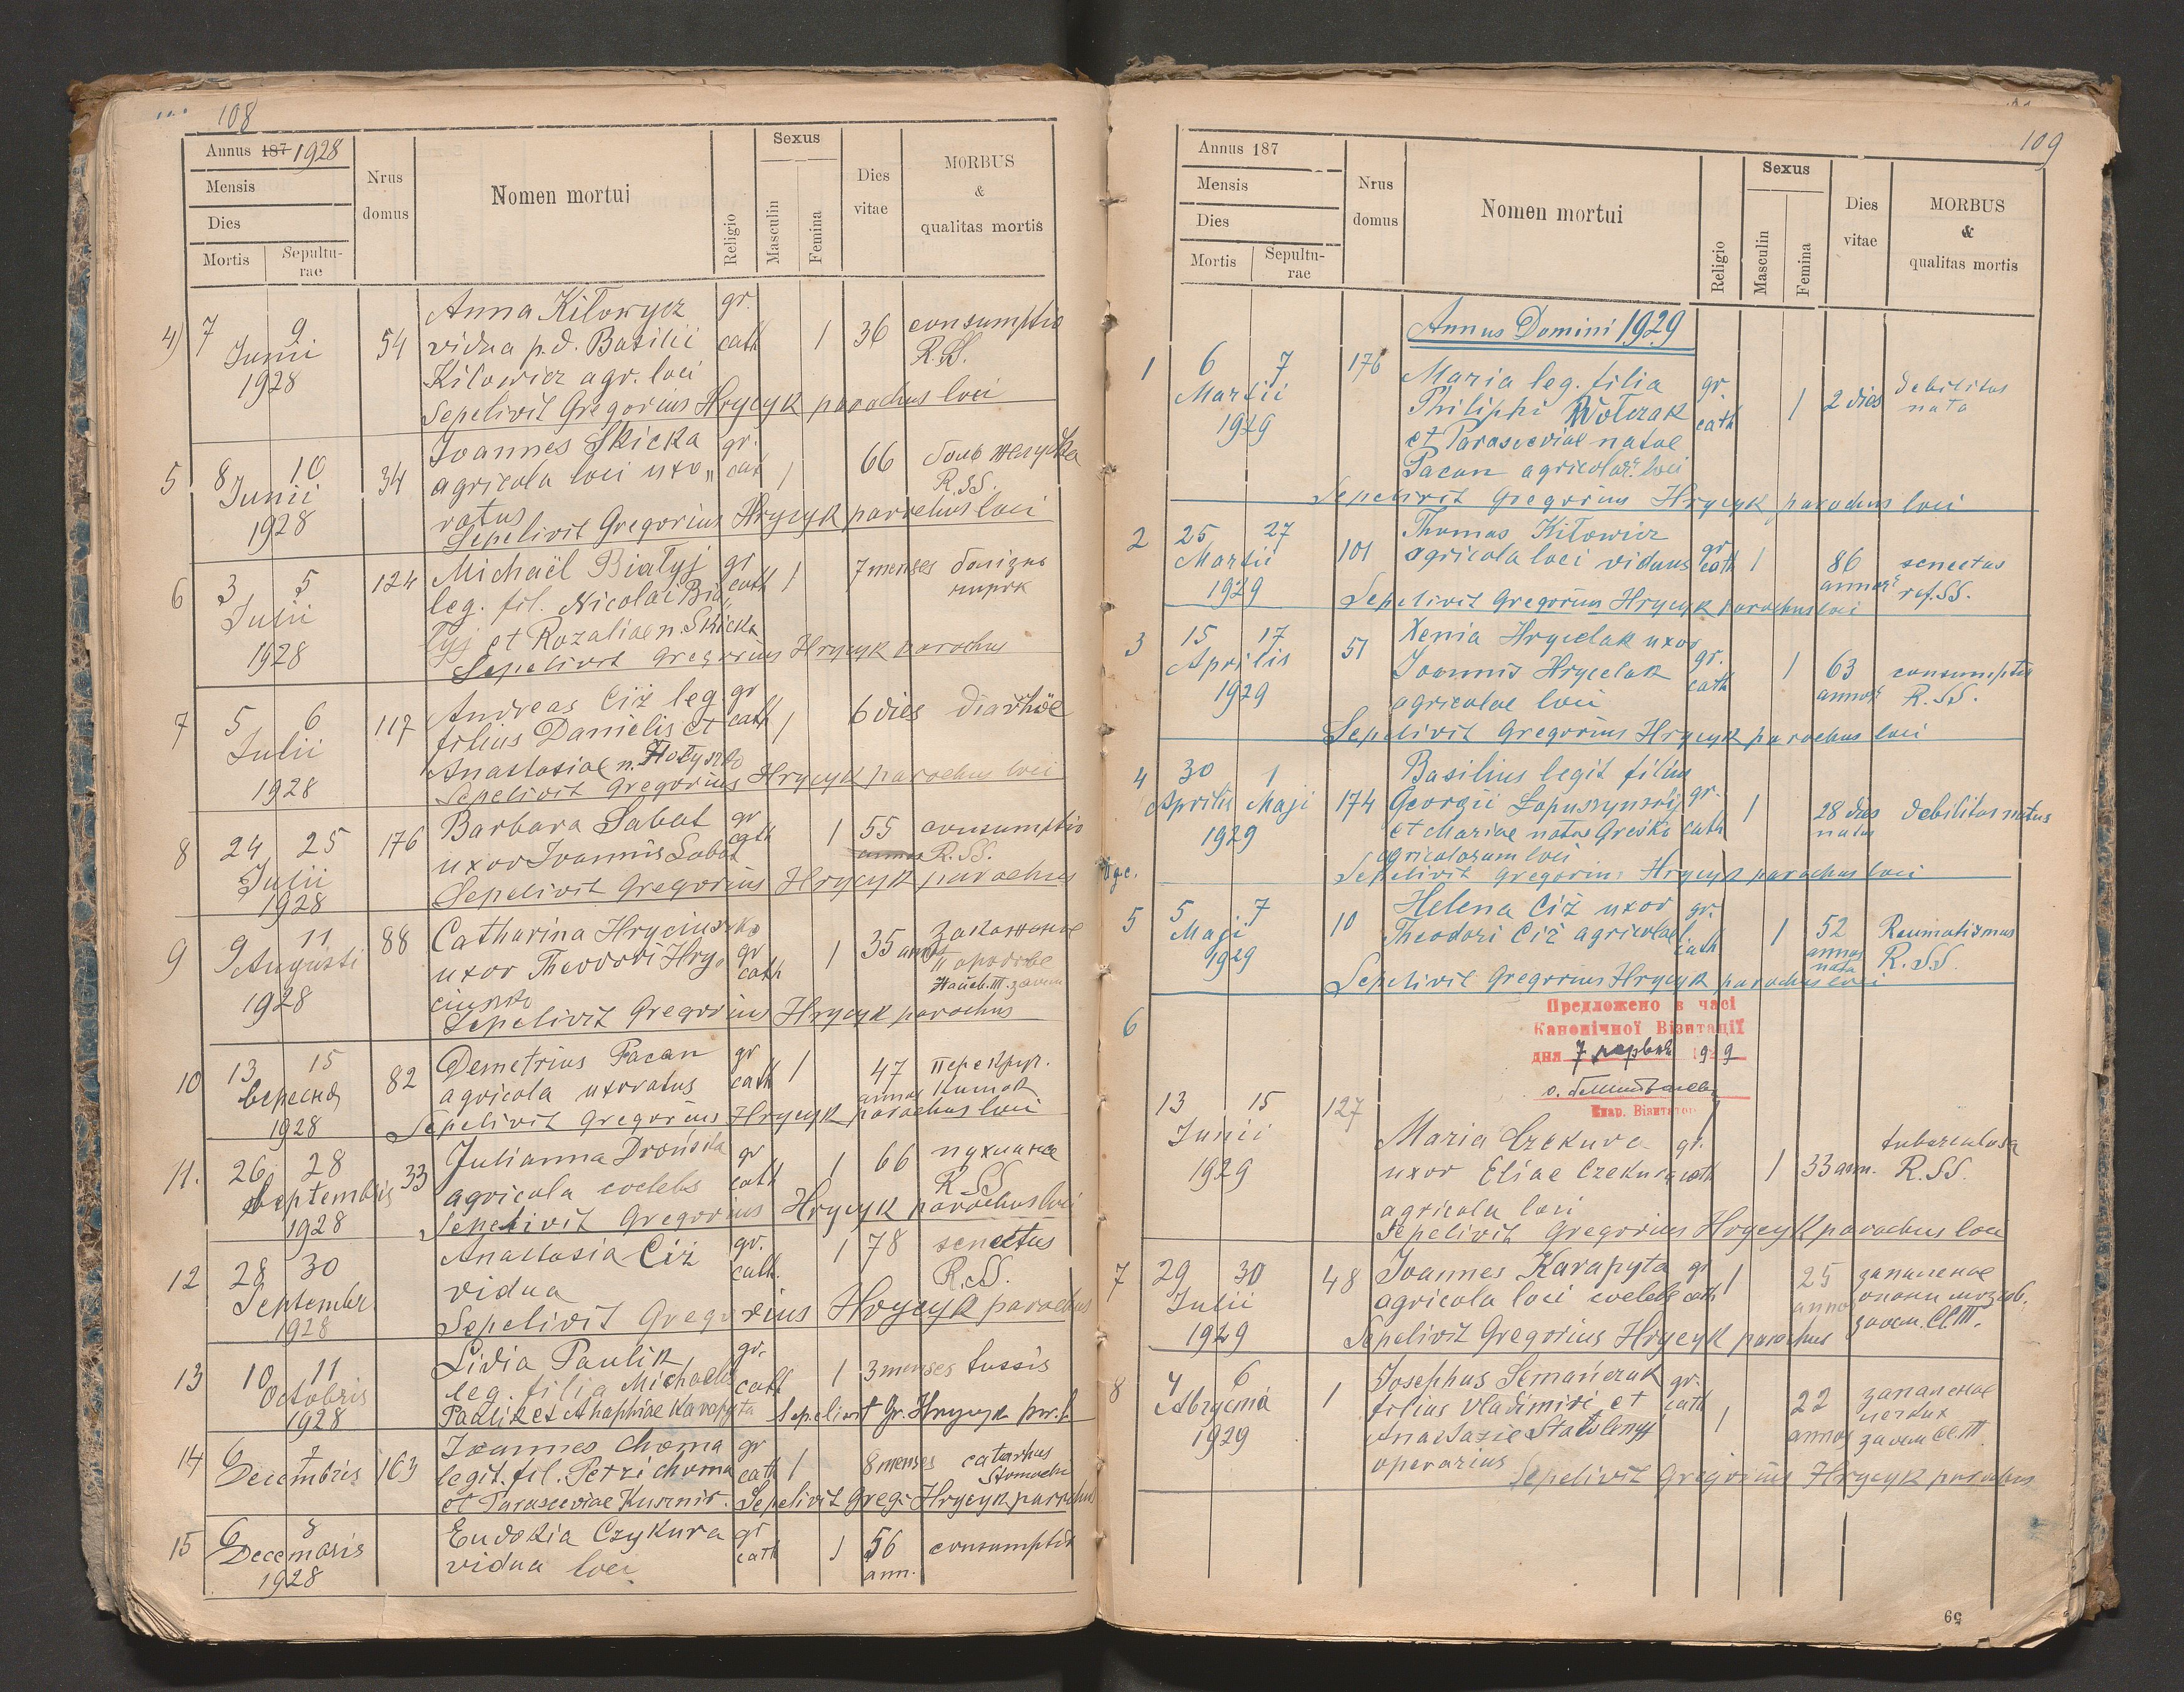 108
Annus 187 1928
Mensis
Dies
Mortis
Sepultu-
rae
Nrus
domus
Nomen mortui
Religio
Sexus
Masculin
Femina
Dies
vitae
MORBUS
&
qualitas mortis
4) 7 9 54 Anna Kitowycz gr. 1 36 consumptio
Junii vidua p.d. Basilii cath R.SS.
1928 Kitowicz agr. loci
Sepelivit Gregorius Hrycyk parochus loci
5 8 10 34 Joannes Skicka gr. 1 66
Junii agricola loci uxo„ cat R.SS.
1928 ratus
Sepelivit Gregorius Hrycyk parochus loci
6 3 5 124 Michaël Biatyj gr 1 7 menses
Julii leg. fil. Nicolai Bia„ cath
1928 tyj et Rozaliae n. Skicka
Sepelivit Gregorius Hrycyk parochus
7 5 6 117 Andreas Ciż leg. gr 1 6 dies diarhöe
Julii filius Danielis et cath
1928 Anastasiae n.
Sepelivit Gregorius Hrycyk parochus loci
8 24 25 176 Barbara Sabat gr 1 55 consumptio
Julii uxor Joannis Sabat cath annos R.SS.
1928 Sepelivit Gregorius Hrycyk parochus
9 9 11 88 Catharina Hryciuszko gr 1 35 ann
Augusti uxor Theodori Hry„ cath
1928
Sepelivit Gregorius Hrycyk parochus
10 13 15 82 Demetrius Pacan gr 1 47 перекрут.
вересня agricola uxoratus cath annos кишок
1928 Sepelivit Gregorius Hrycyk parochus loci
11. 26 28 33 Julianna Drońska gr 1 66 пухлина
Septembris agricola coelebs cath R.SS
1928 Sepelivit Gregorius Hrycyk parochus loci
12 28 30 Anastasia Ciż gr. 1 78 senectus
Septembr. vidua cath. R.SS.
1928 Sepelivit Gregorius Hrycyk parochus
13 10 11 Lidia Paulik gr. 1 3 menses tussis
Octobris leg. filia Michaelis cath
1928 Paulik et Ahaphiae Karapyta Sepelivit Gr. Hrycyk par. l.
14 6 7 163 Joannes Choma gr 1 8 menses catarhus
Decembris legit. fil. Petri Choma cath Stomachi
et Parasceviae Kusznir. Sepelivit Greg. Hrycyk parochus
15 6 8 Eudokia Czykura gr 1 56 consumptio
Decembris vidua loci cath ann.
1928
109
Annus 187
Mensis
Dies
Mortis
Sepultu-
rae
Nrus
domus
Nomen mortui
Religio
Sexus
Masculin
Femina
Dies
vitae
MORBUS
&
qualitas mortis
Annus Domini 1929
1 6 7 176 Maria leg. filia gr. 1 2 dies debilitas
Martii Philiphi Wolczak cath nata
1929 et Parasceviae natae
Pacan agricolar. loci
Sepelivit Gregorius Hrycyk parochus loci
2 25 27 101 Thomas Kitowicz gr 1 86 senectus
Martii agricola loci viduus cath annor. ref. SS.
1929 Sepelivit Gregorius Hrycyk parochus loci
3 15 17 51 Xenia Hrycelak uxor gr. 1 63 consumptio
Aprilis Joannis Hrycelak cath annor. R.SS.
1929 agricolae loci
Sepelivit Gregorius Hrycyk parochus loci
4 30 1 174 Basilius legit filius gr. 1 28 dies debilitas natus
Aprilis Maji Georgii Lopuszynskij cath natus
1929 et Mariae natae Greśko
agricolarum loci
Sepelivit Gregorius Hrycyk parochus loci
5 5 7 10 Helena Ciż uxor gr. 1 52 Reumatismus
Maji Theodori Ciż agricolae cath annos R.SS.
1929 nata
Sepelivit Gregorius Hrycyk parochus loci
6 Предложено в часі
Канонічної Візитації
дня 7 червня 1929
Візитатор
13 15 127 Maria Czekura gr. 1 33 ann. tuberculosa
Junii uxor Eliae Czekura cath R.SS.
1929 agricola loci
Sepelivit Gregorius Hrycyk parochus loci
7 29 30 48 Joannes Karapyta gr 1 25 запалене
Julii agricola loci coelebs cath annos
1929 Sepelivit Gregorius Hrycyk parochus
8 4 6 1 Josephus Semańczuk gr. 1 22 запалене
Августа filius Vladimiri et cath annos
1929 Anastazie
operarius
Sepelivit Gregorius Hrycyk parochus
59